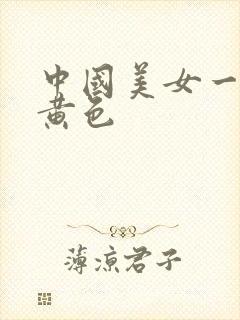 中國美女一
黄色
薄凉君子